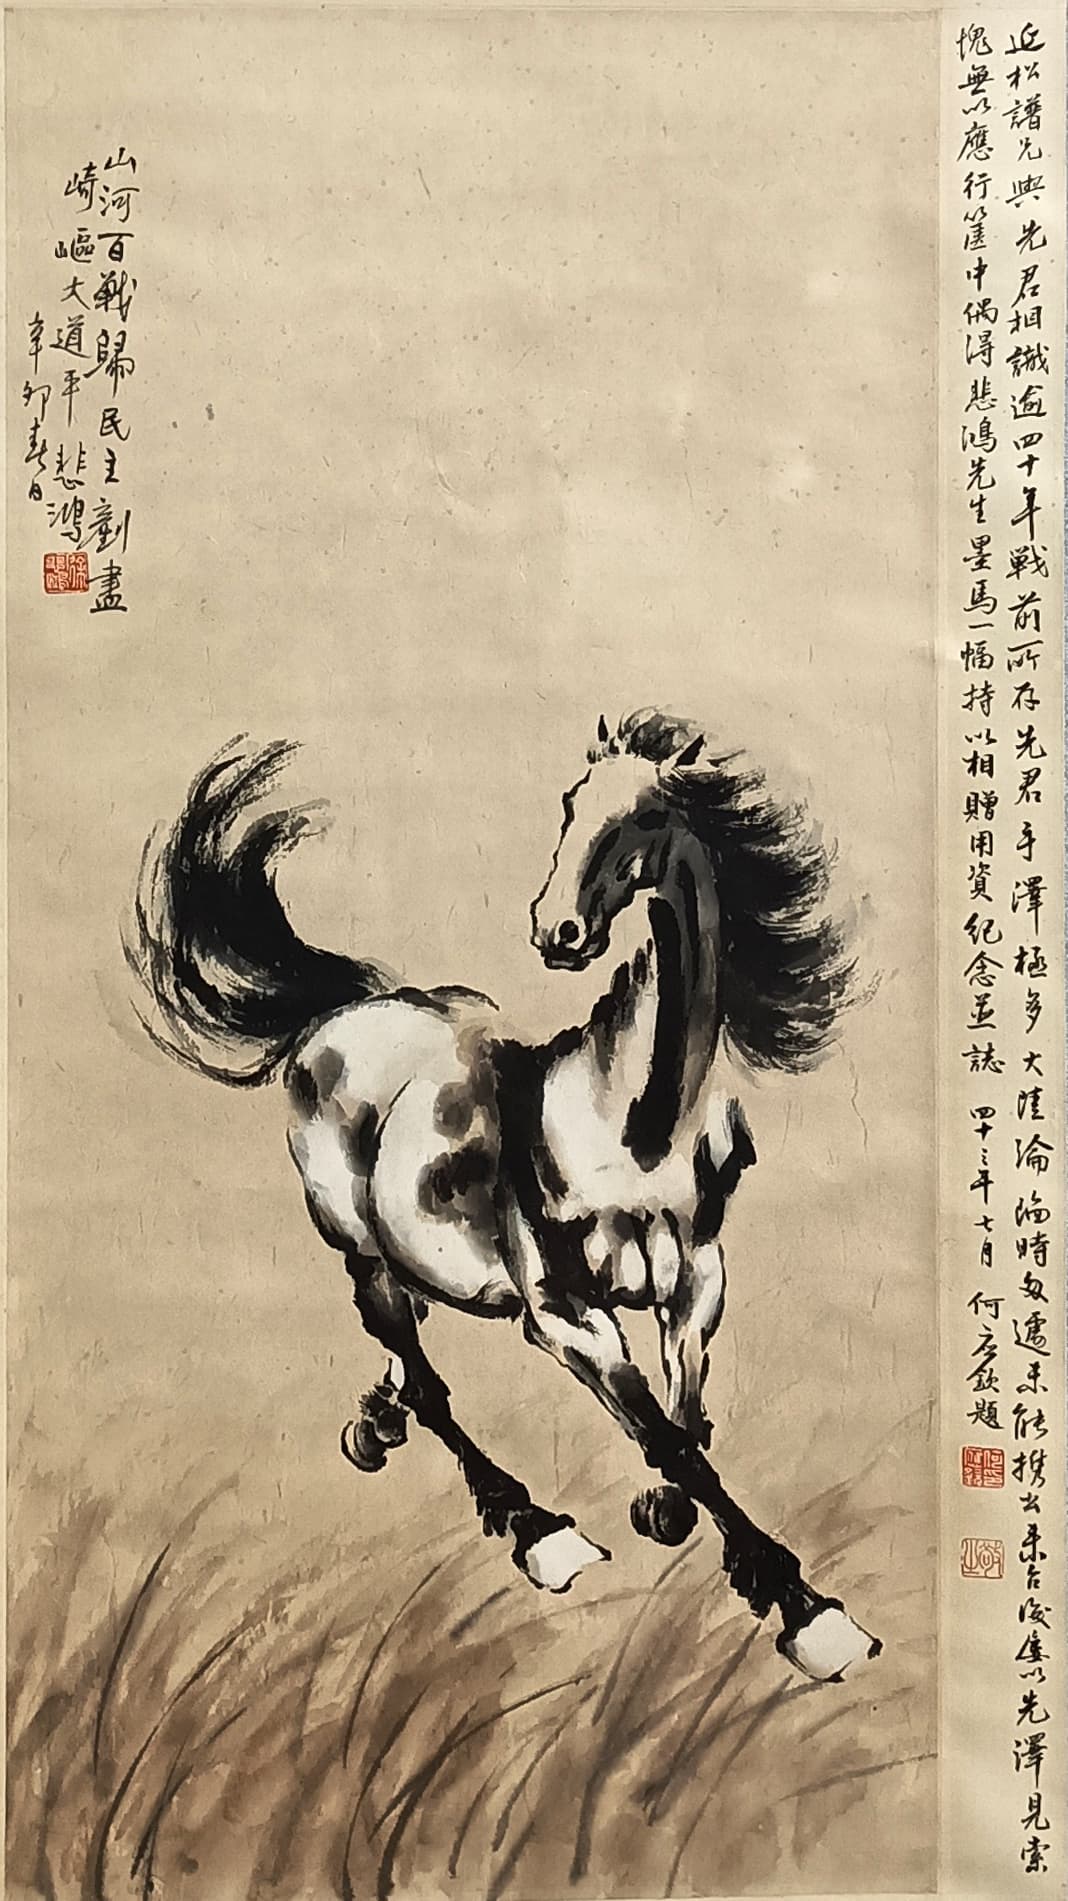 延松譜兄與先君相識逾四十年戰前所存先君手澤極多大陸淪陷時匆遽未能携出来台後屢以先澤見索
愧無以應行篋中偶得悲鴻先生墨馬一幅持以相贈用資紀念並誌 四十三年七月 何应欽題
山河百戰歸民主剷盡
崎嶇大道平 悲鴻
辛卯春日